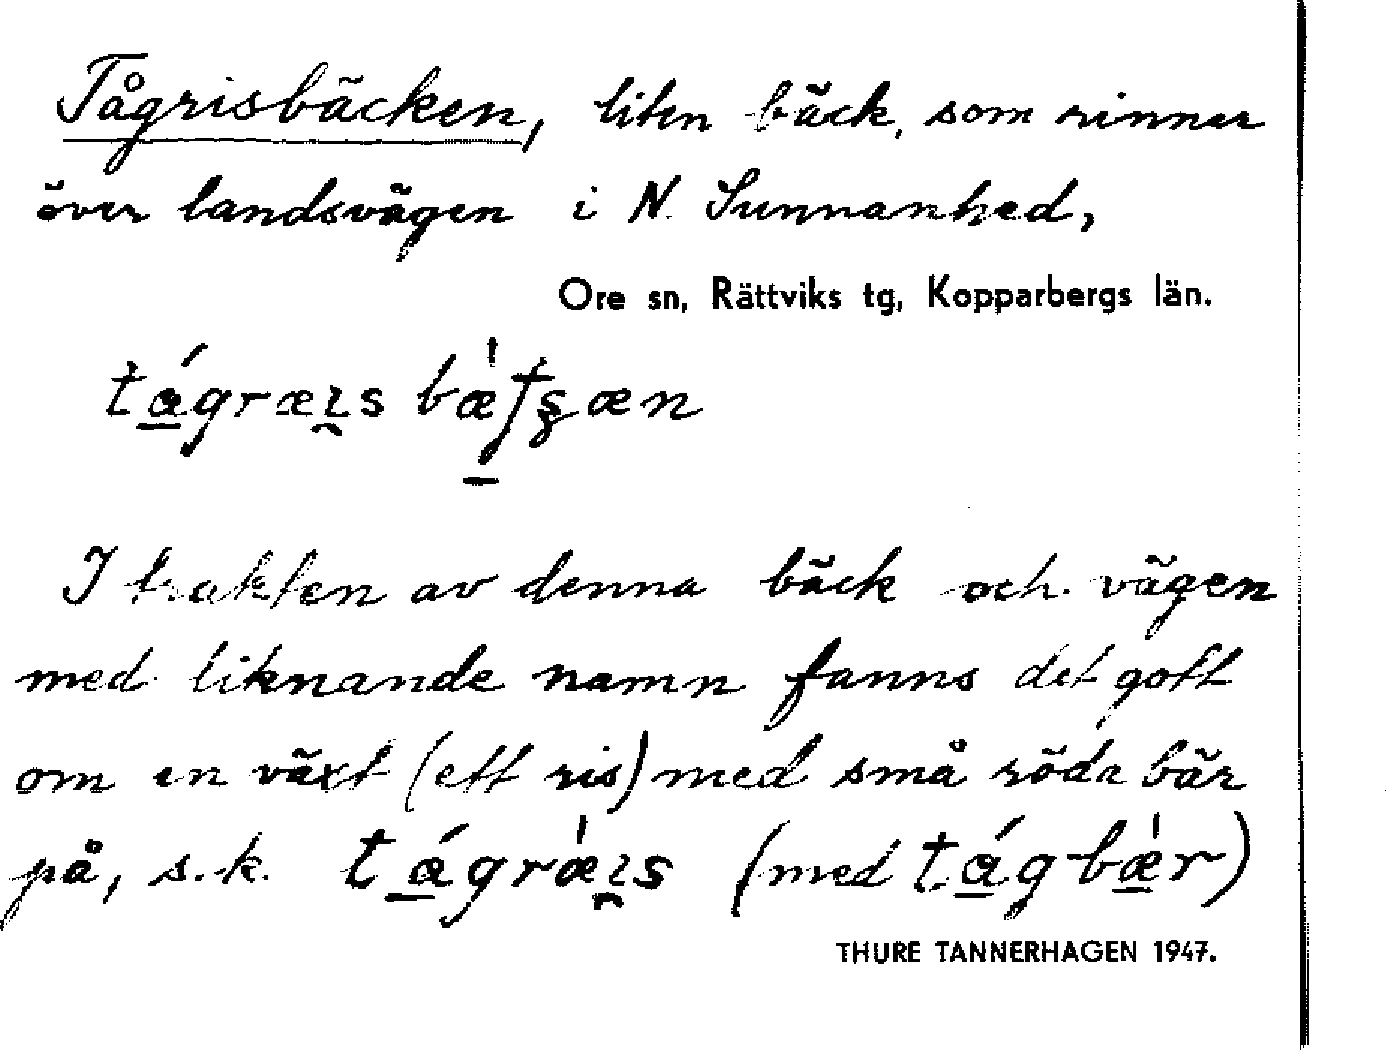 Tågrisbäcken, liten bäck, som rinner
över landsvägen i N. Sunnanhed,
Ore sn, Rättviks tg, Kopparbergs län.
I trakten av denna bäck och vägen
med liknande namn fanns det gott
om en växt (ett ris) med små röda bär
på, s.k. (med
THURE TANNERHAGEN 1947.